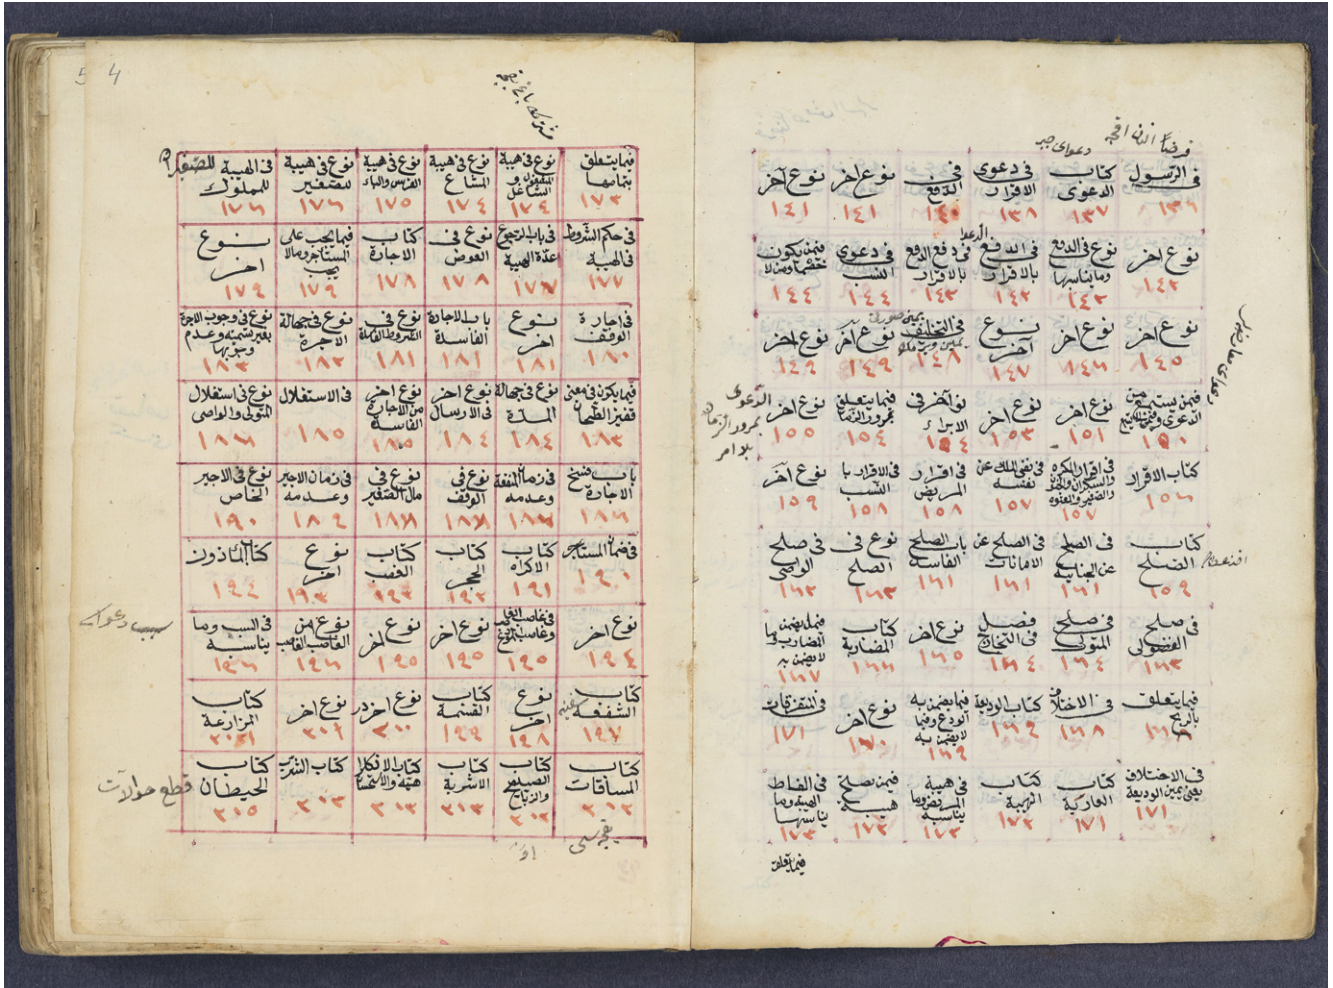 دعواى جبر
فى الرسول
١٣٦
كتاب الدعوى
١٣٧
فى دعوى الاقرار
١٣٨
فى الدفع
١٤٠
نوع اخر
١٤١
نوع آخر
١٤١
نوع اخر
١٤٢
نوع فى الدفع وما يناسبها
١٤٢
فى الدفع بالاقرار
١٤٢
فى دفع الدفع بالاقرار
١٤٣
فى دعوى النسب
١٤٤
فيمن يكون خصما ومن لا
١٤٤
نوع اخر
١٤٥
نوع اخر
١٤٦
نوع آخر
١٤٧
فى التحليف
١٤٨
نوع آخر
١٤٩
نوع اخر
١٤٩
فيمن يستمع من الدعوى
١٥٠
نوع اخر
١٥١
نوع اخر
١٥٣
نوع آخر فى الابراء
١٥٤
فيما يتعلق بمرور الزمان
١٥٤
نوع اخر
١٥٥
الدعوى
بمرور الزمان
بلا امر
كتاب الاقرار
١٥٦
فى اقرار المكره والسكران
والصغير والمعتوه
١٥٧
فى نفى الملك عن نفسه
١٥٧
فى اقرار المريض
١٥٨
فى الاقرار با النسب
١٥٨
نوع آخر
١٥٩
كتاب الصلح
١٥٩
فى الصلح عن الجناية
١٦١
فى الصلح عن الامانات
١٦١
باب الصلح الفاسد
١٦١
نوع فى الصلح
١٦٣
فى صلح الوصى
١٦٣
فى صلح الفضولى
١٦٣
فى صلح المتولى
١٦٤
فصل فى التخارج
١٦٤
نوع اخر
١٦٥
كتاب المضاربة
١٦٦
فيما يضمن المضارب وما لا يضمن به
١٦٧
فيما يتعلق بالربح
١٦٨
فى الاختلاف
١٦٨
كتاب الوديعة
١٦٩
فيما يضمن به المودع وفيما لا يضمن به
١٦٩
نوع اخر
١٧٠
فى المتفرقات
١٧١
فى الاختلاف يعنى يمين الوديعة
١٧١
كتاب العارية
١٧١
كتاب الهبة
١٧٢
فى هبة المريض وما يناسبه
١٧٢
فيمن يصلح هبة
١٧٢
فى الفاظ الهبة وما يناسبها
١٧٣
فيما يتعلق
5 4
فيما يتعلق بتمامها
١٧٣
نوع فى هبة المشغول و الشاغل
١٧٤
نوع فى هبة المشاع
١٧٤
نوع فى هبة
١٧٥
نوع فى هبة للصغير
١٧٦
فى الهبة للمملوك
١٧٦
فى حكم الشروط فى الهبة
١٧٧
فى باب الرجوع عدة الهبة
١٧٧
نوع فى العوض
١٧٨
كتاب الاجارة
١٧٨
فيما يجب على المستأجر ومالا يجب
١٧٩
نوع اخر
١٧٩
فى اجارة الوقف
١٨٠
نوع اخر
١٨١
باب الاجارة الفاسدة
١٨١
نوع فى الشروط الفاسدة
١٨١
نوع فى جهالة الاجرة
١٨٢
نوع فى وجوب الاجرة بغير تسميته وعدم وجوبها
١٨٣
فيما يكون فى معنى قفيز الطحان
١٨٣
نوع فى جهالة المدة
١٨٤
نوع اخر فى الارسال
١٨٤
نوع اخر من الاجارة الفاسدة
١٨٥
فى الاستغلال
١٨٥
نوع فى استغلال المتولى والوصى
١٨٦
باب فسخ الاجارة
١٨٦
فى زمان المنفعة وعدمه
١٨٧
نوع فى الوقف
١٨٧
نوع فى مال الصغير
١٨٧
فى ضمان الاجير وعدمه
١٨٩
نوع فى الاجير الخاص
١٩٠
فى ضمان المستأجر
١٩٠
كتاب الاكراه
١٩١
كتاب الحجر
١٩٢
كتاب الغصب
١٩٣
نوع اخر
١٩٣
كتاب المأذون
١٩٤
نوع اخر
١٩٤
١٩٥
نوع اخر
١٩٥
نوع اخر
١٩٥
نوع من الغاصب الغاصب
١٩٦
فى السبب وما يناسبه
١٩٦
كتاب الشفعة
١٩٧
نوع اخر
١٩٨
كتاب القسمة
١٩٩
نوع اخر
٢٠٠
نوع اخر
٢٠١
كتاب المزارعة
٢٠١
كتاب المساقات
٢٠٢
كتاب الصيد والذبائح
٢٠٢
كتاب الاشربة
٢٠٣
كتاب الكراهية والاستحسان
٢٠٣
كتاب الشرب
٢٠٣
كتاب الحيطان
٢٠٥